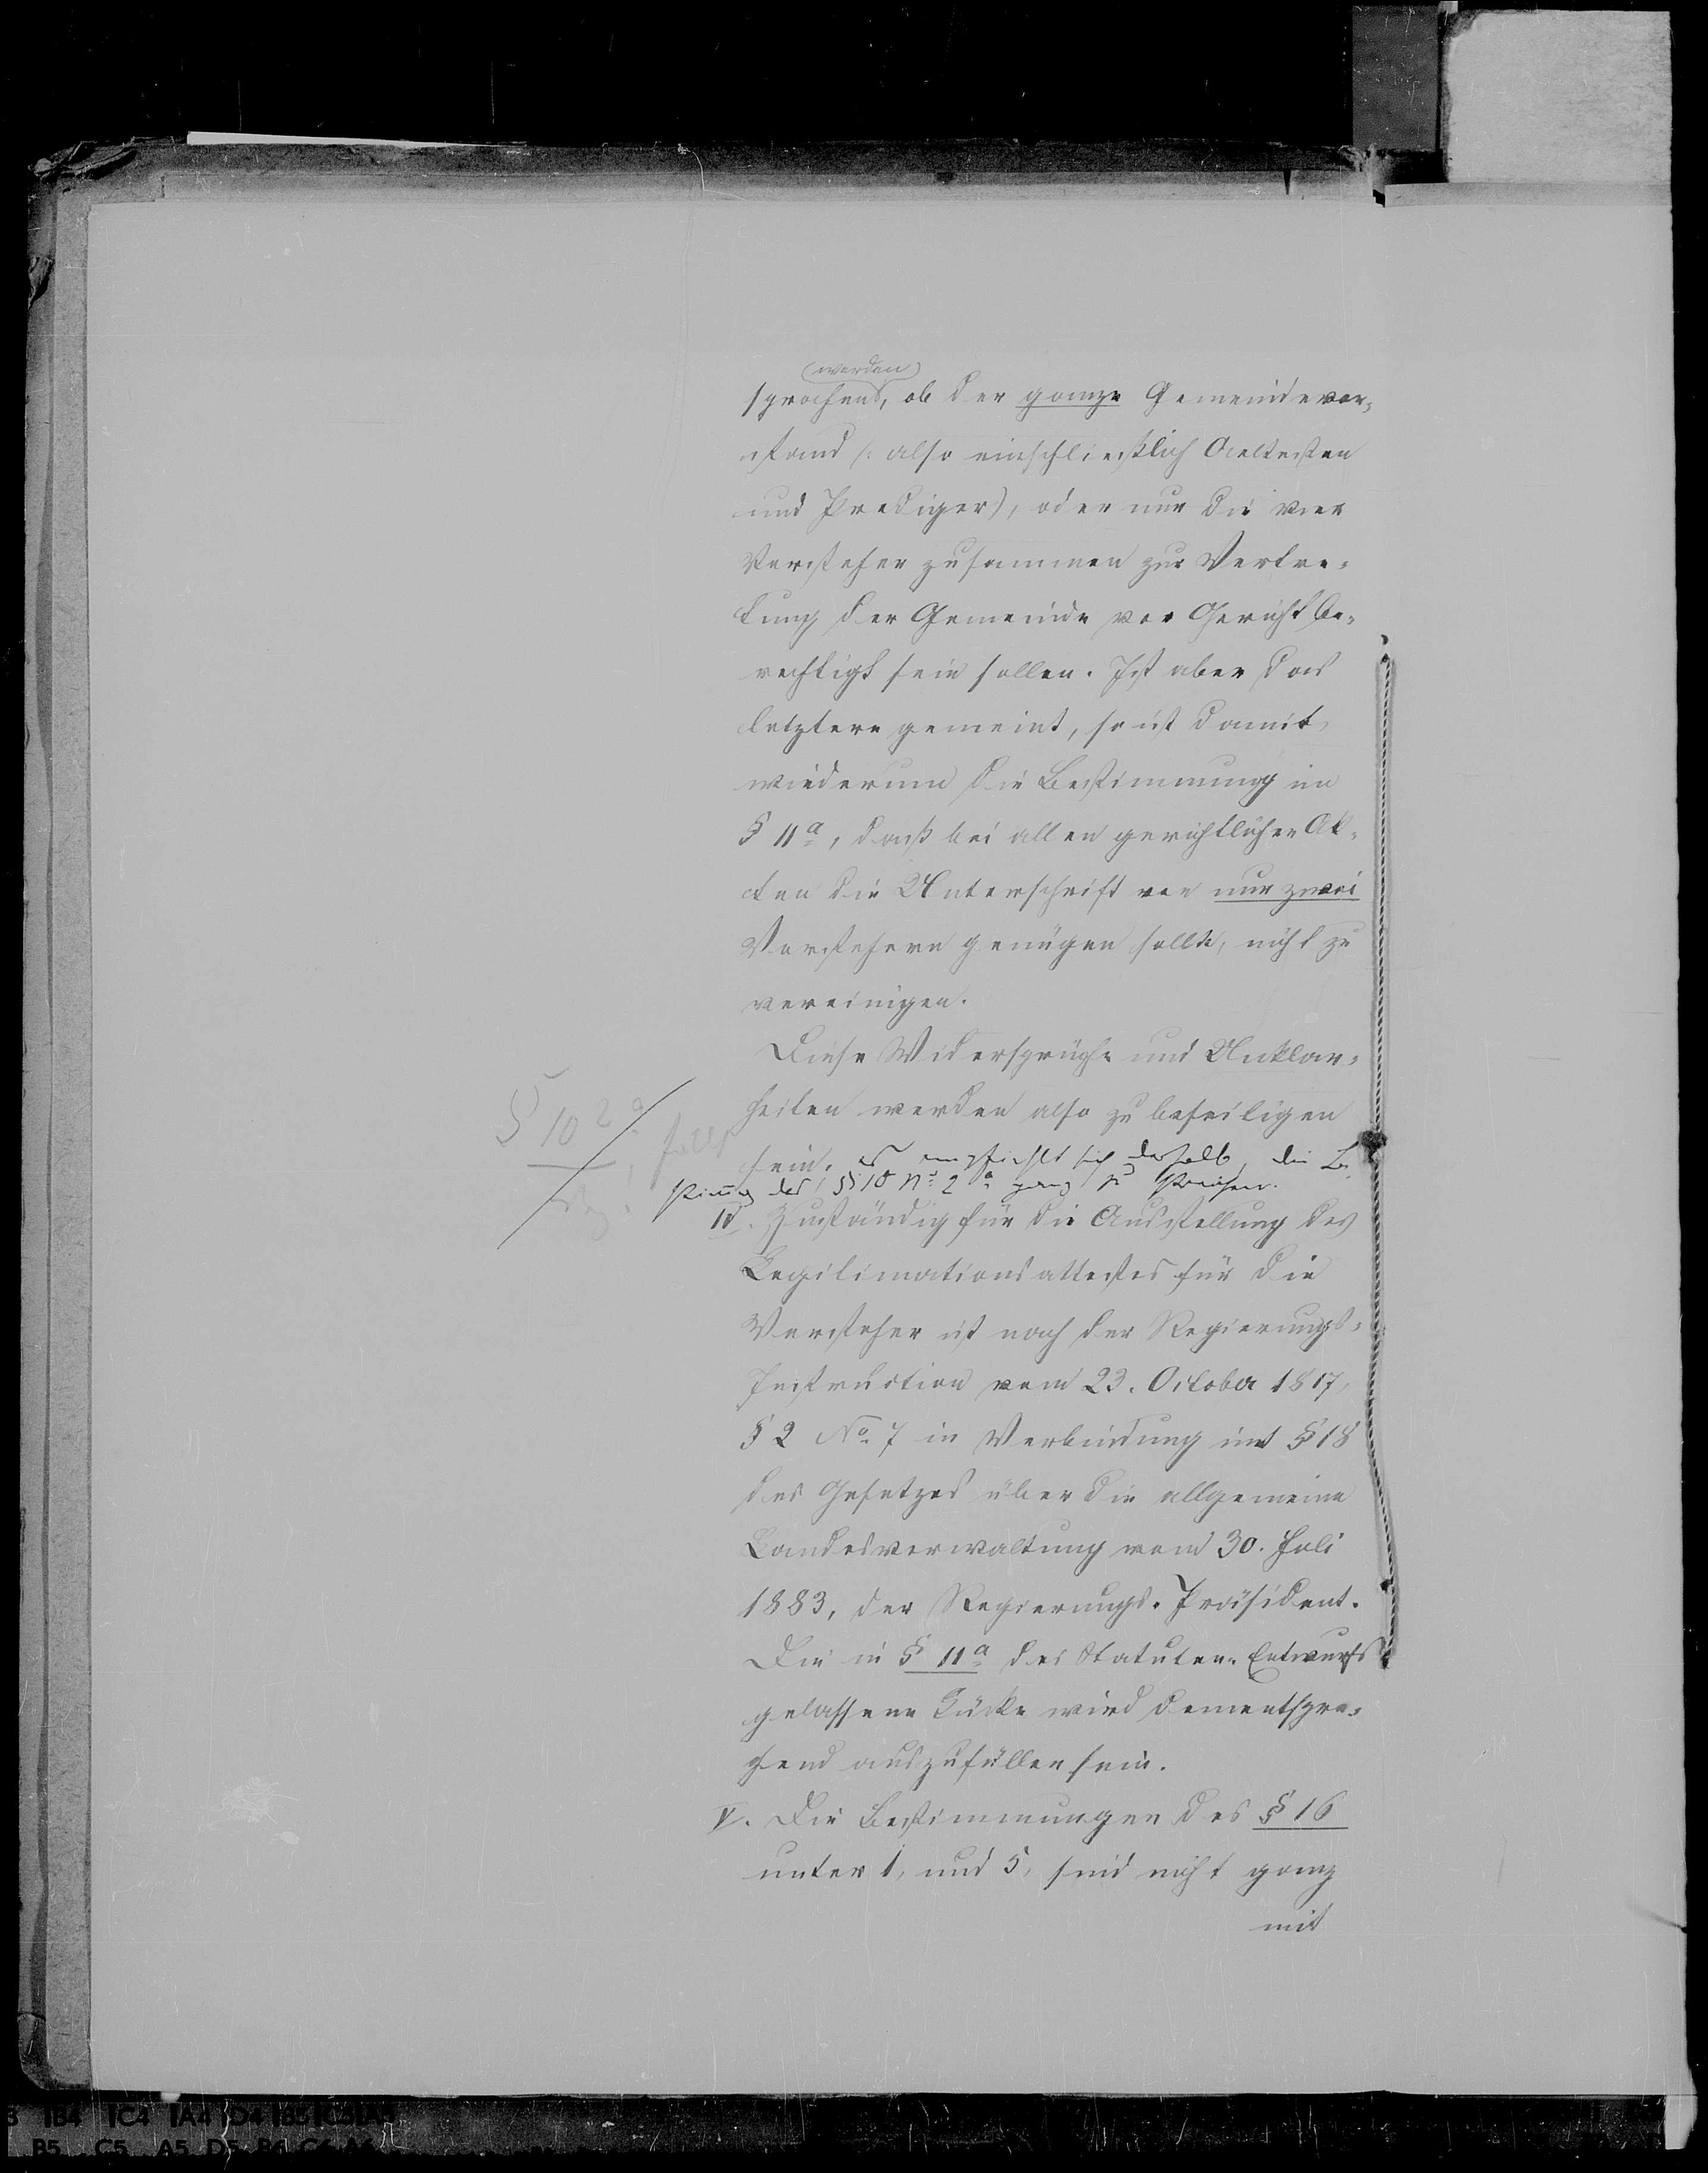 (werden)
sprochen, ob der ganze Gemeindevor-
stand (: also einschließlich Aeltesten
und Prediger), oder nur die vier
Vorsteher zusammen zur Vertre-
tung der Gemeinde vor Gericht be-
rechtigt sein sollen. Ist aber das
letztere gemeint, so ist damit
wiederum die Bestimmung im
§ 11a, daß bei allen gerichtlichen Ak-
ten die Unterschrift von nur zwei
Vorstehern genügen sollte, nicht zu
vereinigen.
Diese Widersprüche und Unklar-
heiten werden also zu beseitigen
§ 10 2a
fällt
sein. es empfiehlt sich deshalb, die Be-
stimung des § 10 No 2a ganz zu streichen.
IV. Zuständig für die Ausstellung des
Legitimationsattestes für die
Vorsteher ist nach der Regierungs-
Instruction vom 23. October 1817,
§ 2 No. 7 in Verbindung mit § 18
des Gesetzes über die allgemeine
Landesverwaltung vom 30. Juli
1883, der Regierungs-Präsident.
Die in § 11a des Statuten-Entwurfs
gelassene Lücke wird dementspre-
chend auszufüllen sein.
V. Die Bestimmungen des § 16
unter 1, und 5, sind nicht ganz
mit
B4 C4 A4 D4 B5 C5 A5
B5 C5 A5 D5 B6 C6 A6